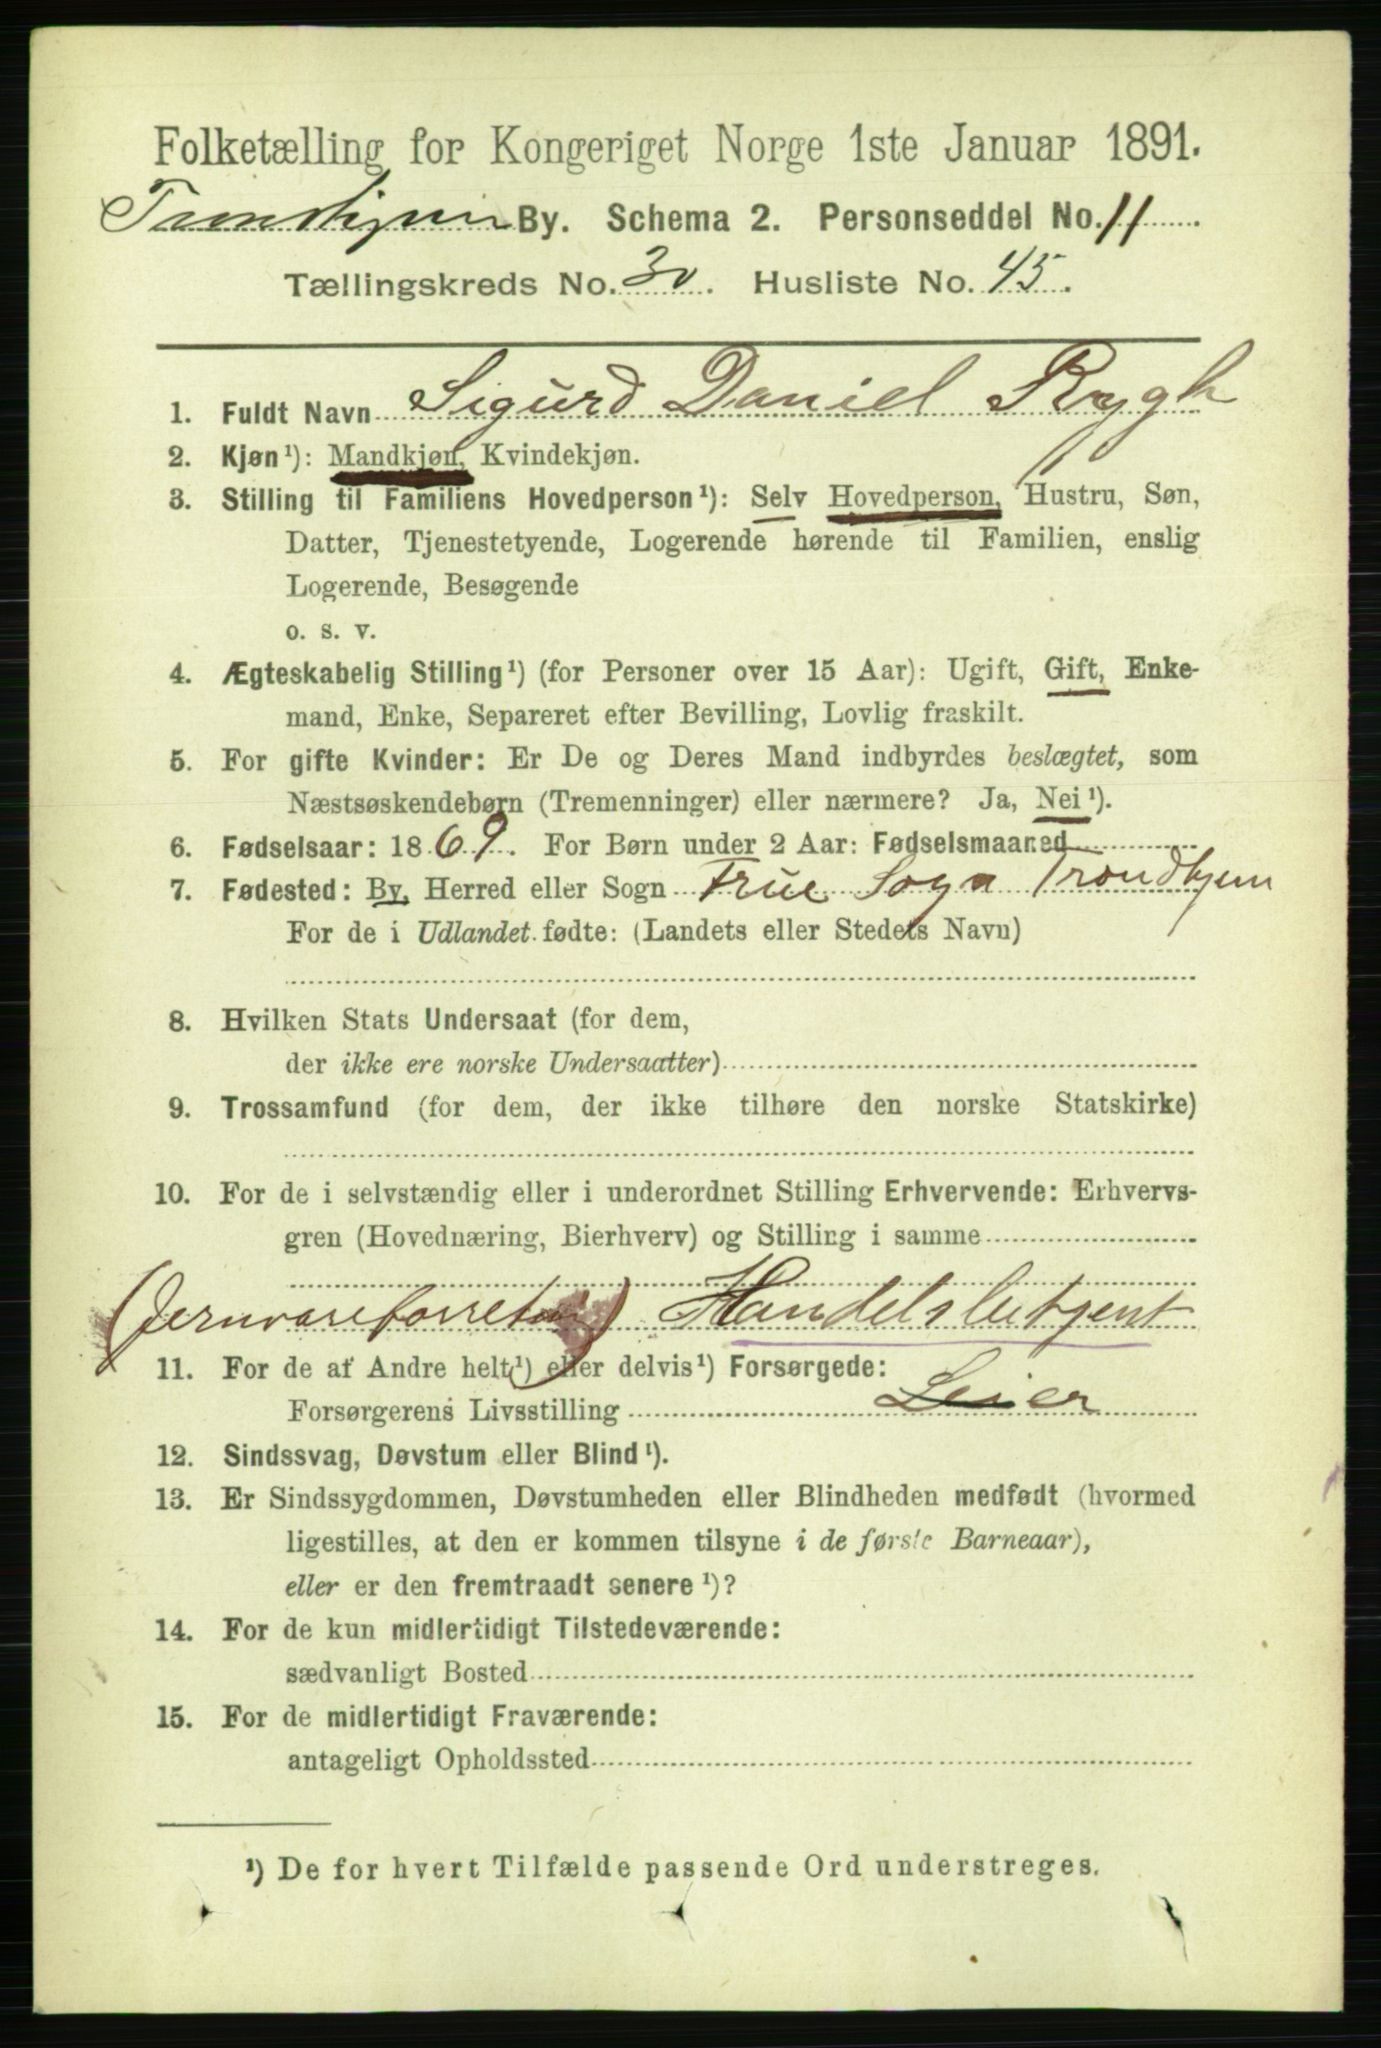 Folketælling for Kongeriget Norge 1ste Januar 1891.
Trondhjem By. Schema 2. Personseddel No. 11
Tællingskreds No. 30. Husliste No. 45.
1. Fuldt Navn Sigurd Daniel Rygh
2. Kjøn¹): Mandkjøn, Kvindekjøn.
3. Stilling til Familiens Hovedperson¹): Selv Hovedperson, Hustru, Søn,
Datter, Tjenestetyende, Logerende hørende til Familien, enslig
Logerende, Besøgende
o. s. v.
4. Ægteskabelig Stilling¹) (for Personer over 15 Aar): Ugift, Gift, Enke-
mand, Enke, Separeret efter Bevilling, Lovlig fraskilt.
5. For gifte Kvinder: Er De og Deres Mand indbyrdes beslægtet, som
Næstsøskendebørn (Tremenninger) eller nærmere? Ja, Nei¹).
6. Fødselsaar: 1869. For Børn under 2 Aar: Fødselsmaaned
7. Fødested: By, Herred eller Sogn Frue Sogn Trondhjem
For de i Udlandet fødte: (Landets eller Stedets Navn)
8. Hvilken Stats Undersaat (for dem,
der ikke ere norske Undersaatter)
9. Trossamfund (for dem, der ikke tilhøre den norske Statskirke)
10. For de i selvstændig eller i underordnet Stilling Erhvervende: Erhvervs-
gren (Hovednæring, Bierhverv) og Stilling i samme
(Jernvareforretn) Handelsbetjent
11. For de af Andre helt¹) eller delvis¹) Forsørgede:
Forsørgerens Livsstilling
12. Sindssvag, Døvstum eller Blind¹).
13. Er Sindssygdommen, Døvstumheden eller Blindheden medfødt (hvormed
ligestilles, at den er kommen tilsyne i de første Barneaar),
eller er den fremtraadt senere¹)?
14. For de kun midlertidigt Tilstedeværende:
sædvanligt Bosted
15. For de midlertidigt Fraværende:
antageligt Opholdssted
¹) De for hvert Tilfælde passende Ord understreges.